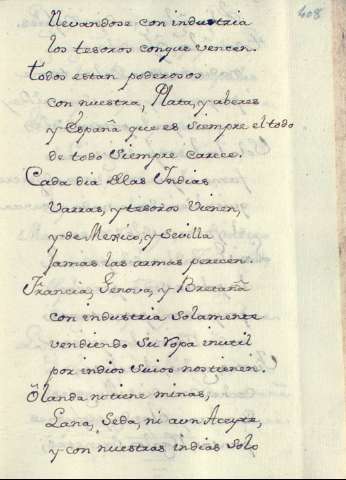 408
llevandose con industria
los tesoros conque vencen.
todos estan poderosos
con nuestra, Plata, y aberes
y España que es siempre el todo
de todo siempre carece.
Cada dia de las Indias
varras, y tesoros vienen,
y de Mexico, y Sevilla
jamas las armas perecen.
Francia, Genova, y Bretaña
con industria solamente
vendiendo su ropa inutil
por indios suios nos tienen.
Olanda no tiene minas,
Lana, Seda, ni aun Aceyte,
y con nuestras indias solo